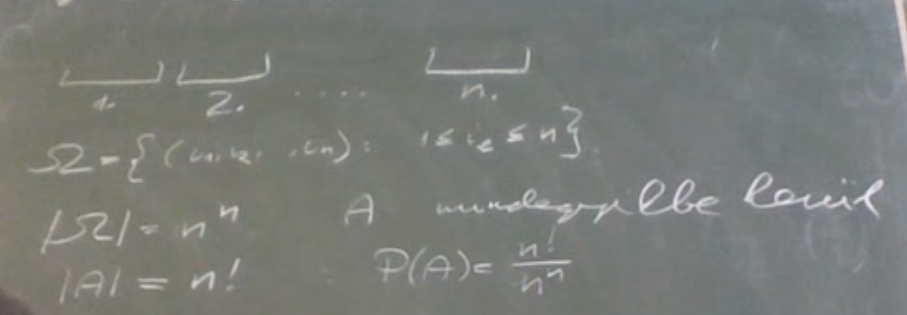 1. 2. .... n.
Ω = {(i₁, i₂, .., iₙ): 1 ≤ i_ℓ ≤ n}
|Ω| = nⁿ A mindegyikbe kerül
|A| = n! P(A) = n!/nⁿ